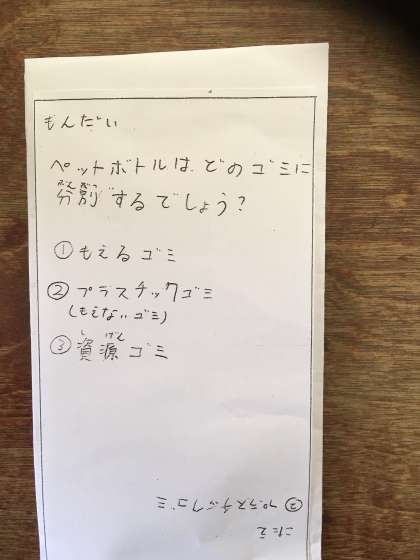 もんだい
ペットボトルは、どのゴミに
ぶんべつ
分別するでしょう?
①もえるゴミ
②プラスチックゴミ
(もえないゴミ)
しげん
③資源ゴミ
こたえ
②プラスチックゴミ